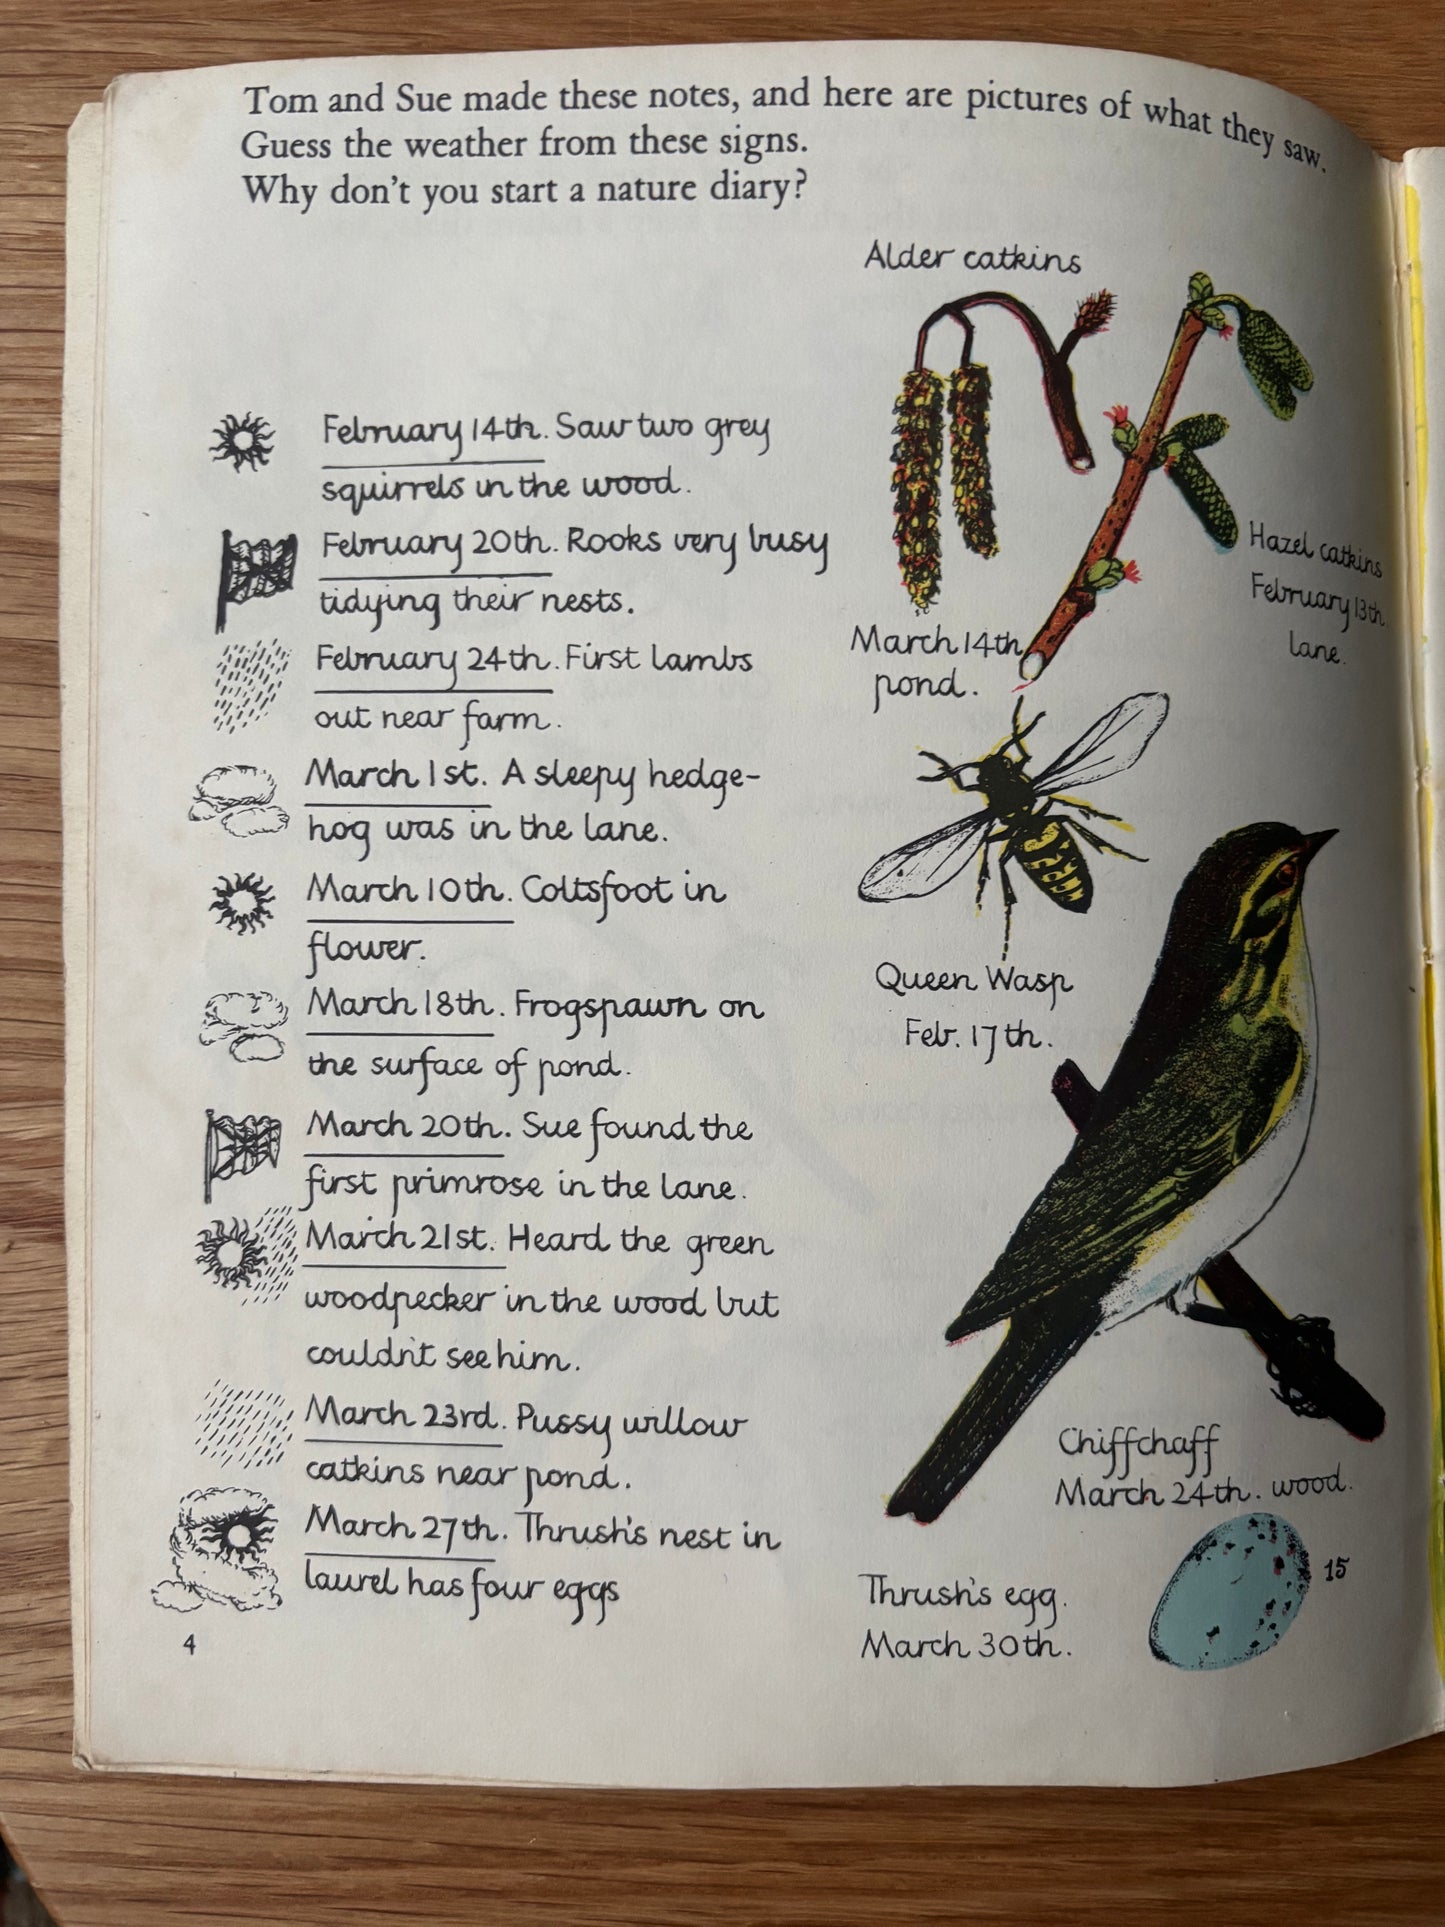 Tom and Sue made these notes, and here are pictures of what they saw.
Guess the weather from these signs.
Why don't you start a nature diary?
February 14th. Saw two grey
squirrels in the wood.
February 20th. Rooks very busy
tidying their nests.
February 24th. First lambs
out near farm.
March 1st. A sleepy hedge-
hog was in the lane.
March 10th. Coltsfoot in
flower.
March 18th. Frogspawn on
the surface of pond.
March 20th. Sue found the
first primrose in the lane.
March 21st. Heard the green
woodpecker in the wood but
couldn't see him.
March 23rd. Pussy willow
catkins near pond.
March 27th. Thrush's nest in
laurel has four eggs
4
Alder catkins
March 14th
pond.
Hazel catkins
February 13th
lane.
Queen Wasp
Feb. 17th.
Chiffchaff
March 24th. wood.
Thrush's egg.
March 30th.
15